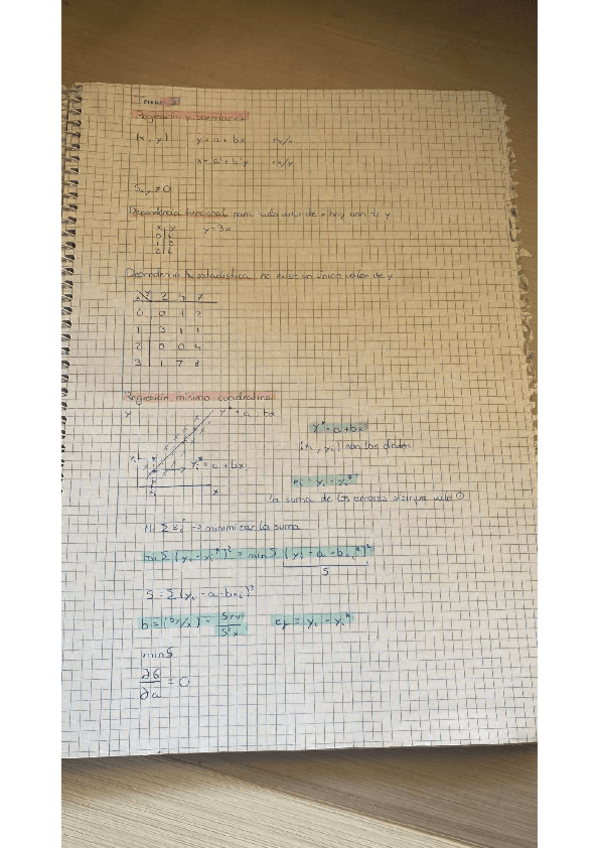 Tema 5
Regresión y correlación
(x, y) y = a + bx ry/x
x = a' + b'y rx/y
Sxy ≠ 0
Dependencia funcional para cada valor de x hay uno de y
x y y = 3x
0 0
1 3
2 6
Dependencia estadística no existe un único valor de y
x\y 2 4
0 0 1 2
1 3 1 1
2 0 0 4
3 1 7
Regresión mínimo cuadrática
y y* = a + bx
y* = a + bx
(xi, yi) son los dados
yi* = a + bxi
ei = yi - yi*
xi x
la suma de los errores siempre vale 0
Σ ei² → minimizar la suma
min Σ (yi - yi*)² = min Σ (yi - a - bxi)²
S
S = Σ (yi - a - bxi)²
b = (by/x) = Sxy/S²x ei = yi - yi*
min S
∂S/∂a = 0